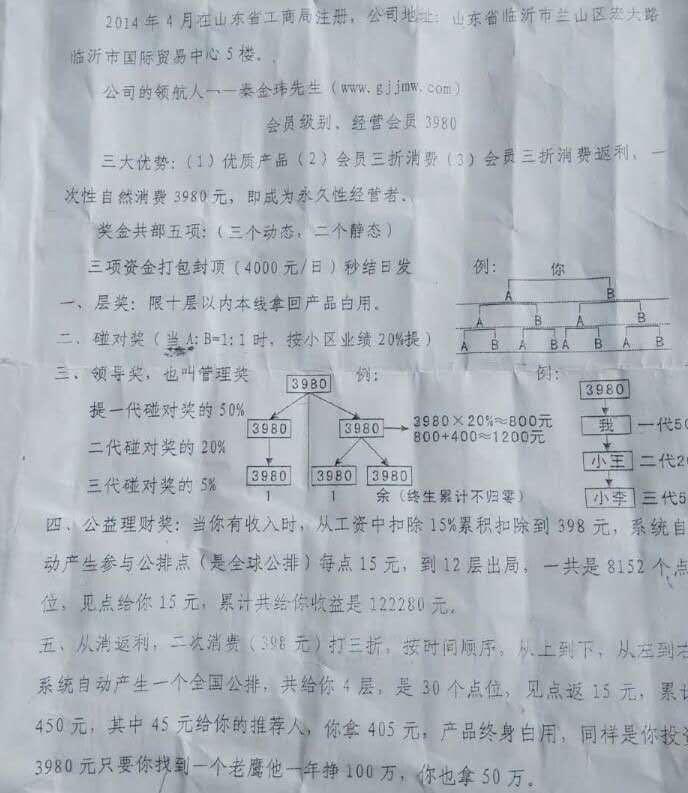 2014年4月在山东省工商局注册，公司地址：山东省临沂市兰山区宏大路
临沂市国际贸易中心5楼。
公司的领航人——秦金玮先生（www.gjjmw.com）
会员级别、经营会员3980
三大优势：（1）优质产品（2）会员三折消费（3）会员三折消费返利，一
次性自然消费3980元，即成为永久性经营者。
奖金共部五项：（三个动态，二个静态）
三项资金打包封顶（4000元/日）秒结日发
例：
你
A B
A B A B
A B B A B A
一、层奖：限十层以内本线拿回产品白用。
二、碰对奖（当A:B=1:1时，按小区业绩20%提）
三、领导奖，也叫管理奖
提一代碰对奖的50%
二代碰对奖的20%
三代碰对奖的5%
例：
3980
3980 3980
3980×20%≈800元
800+400≈1200元
3980 3980 3980
1 1 余（终生累计不归零）
例：
3980
我 一代50
小王 二代20
小李 三代5
四、公益理财奖：当你有收入时，从工资中扣除15%累积扣除到398元，系统自
动产生参与公排点（是全球公排）每点15元，到12层出局，一共是8152个点
位，见点给你15元，累计共给你收益是122280元。
五、从消返利，二次消费（398元）打三折，按时间顺序，从上到下，从左到右
系统自动产生一个全国公排，共给你4层，是30个点位，见点返15元，累计
450元，其中45元给你的推荐人，你拿405元，产品终身白用，同样是你投资
3980元只要你找到一个老鹰他一年挣100万，你也拿50万。